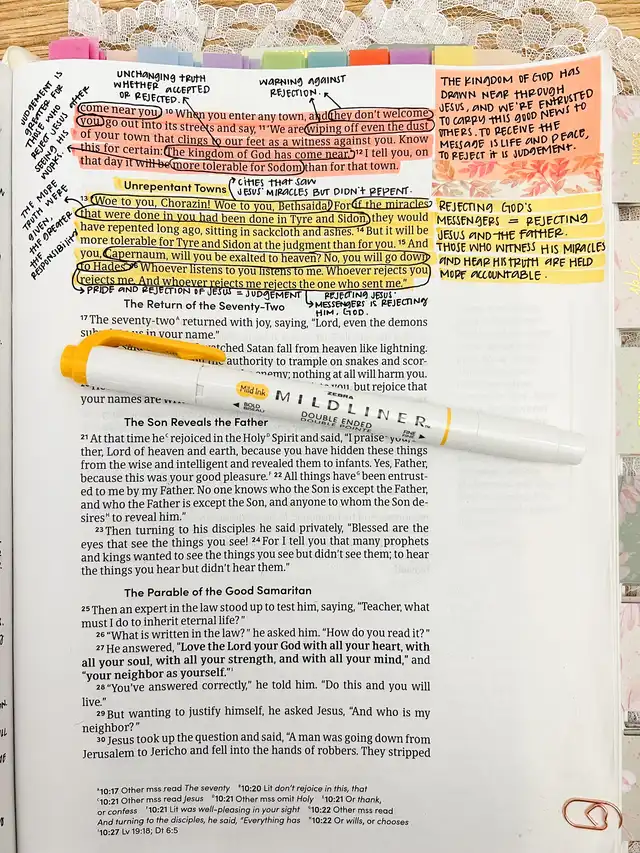 JUDGEMENT IS
GREATER FOR
THOSE WHO
REJECT JESUS AFTER
SEEING HIS
WORKS.
UNCHANGING TRUTH
WHETHER ACCEPTED
OR REJECTED.
WARNING AGAINST
REJECTION.
come near you.' 10 When you enter any town, and they don't welcome
you, go out into its streets and say, 11 'We are wiping off even the dust
of your town that clings to our feet as a witness against you. Know
this for certain: The kingdom of God has come near.' 12 I tell you, on
that day it will be more tolerable for Sodom than for that town.
THE KINGDOM OF GOD HAS
DRAWN NEAR THROUGH
JESUS, AND WE'RE ENTRUSTED
TO CARRY THIS GOOD NEWS TO
OTHERS. TO RECEIVE THE
MESSAGE IS LIFE AND PEACE,
TO REJECT IT IS JUDGEMENT.
THE MORE
TRUTH WERE
GIVEN,
THE GREATER
THE
RESPONSIBILITY
Unrepentant Towns
CITIES THAT SAW
JESUS' MIRACLES BUT DIDN'T REPENT.
13 "Woe to you, Chorazin! Woe to you, Bethsaida! For if the miracles
that were done in you had been done in Tyre and Sidon, they would
have repented long ago, sitting in sackcloth and ashes. 14 But it will be
more tolerable for Tyre and Sidon at the judgment than for you. 15 And
you, Capernaum, will you be exalted to heaven? No, you will go down
to Hades. 16 Whoever listens to you listens to me. Whoever rejects you
rejects me. And whoever rejects me rejects the one who sent me."
PRIDE AND REJECTION OF JESUS = JUDGEMENT
REJECTING JESUS'
MESSENGERS IS REJECTING
HIM, GOD.
REJECTING GOD'S
MESSENGERS = REJECTING
JESUS AND THE FATHER.
THOSE WHO WITNESS HIS MIRACLES
AND HEAR HIS TRUTH ARE HELD
MORE ACCOUNTABLE.
The Return of the Seventy-Two
17 The seventy-two returned with joy, saying, "Lord, even the demons
us in your name."
Satan fall from heaven like lightning.
the authority to trample on snakes and scor-
nothing at all will harm you.
but rejoice that
your names are
Mild ink
BOLD
ZEBRA
MILDLINER™
DOUBLE ENDED
DOUBLE POINTE
FINE
The Son Reveals the Father
21 At that time he rejoiced in the Holy Spirit and said, "I praise
ther, Lord of heaven and earth, because you have hidden these things
from the wise and intelligent and revealed them to infants. Yes, Father,
because this was your good pleasure. 22 All things have been entrust-
ed to me by my Father. No one knows who the Son is except the Father,
and who the Father is except the Son, and anyone to whom the Son de-
sires to reveal him."
23 Then turning to his disciples he said privately, "Blessed are the
eyes that see the things you see! 24 For I tell you that many prophets
and kings wanted to see the things you see but didn't see them; to hear
the things you hear but didn't hear them."
The Parable of the Good Samaritan
25 Then an expert in the law stood up to test him, saying, "Teacher, what
must I do to inherit eternal life?"
26 "What is written in the law?" he asked him. "How do you read it?"
27 He answered, "Love the Lord your God with all your heart, with
all your soul, with all your strength, and with all your mind," and
"your neighbor as yourself."
28 "You've answered correctly," he told him. "Do this and you will
live."
29 But wanting to justify himself, he asked Jesus, "And who is my
neighbor?"
30 Jesus took up the question and said, "A man was going down from
Jerusalem to Jericho and fell into the hands of robbers. They stripped
10:17 Other mss read The seventy 10:20 Lit don't rejoice in this, that
10:21 Other mss read Jesus 10:21 Other mss omit Holy 10:21 Or thank,
or confess 10:21 Lit was well-pleasing in your sight 10:22 Other mss read
And turning to the disciples, he said, "Everything has 10:22 Or wills, or chooses
10:27 Lv 19:18; Dt 6:5